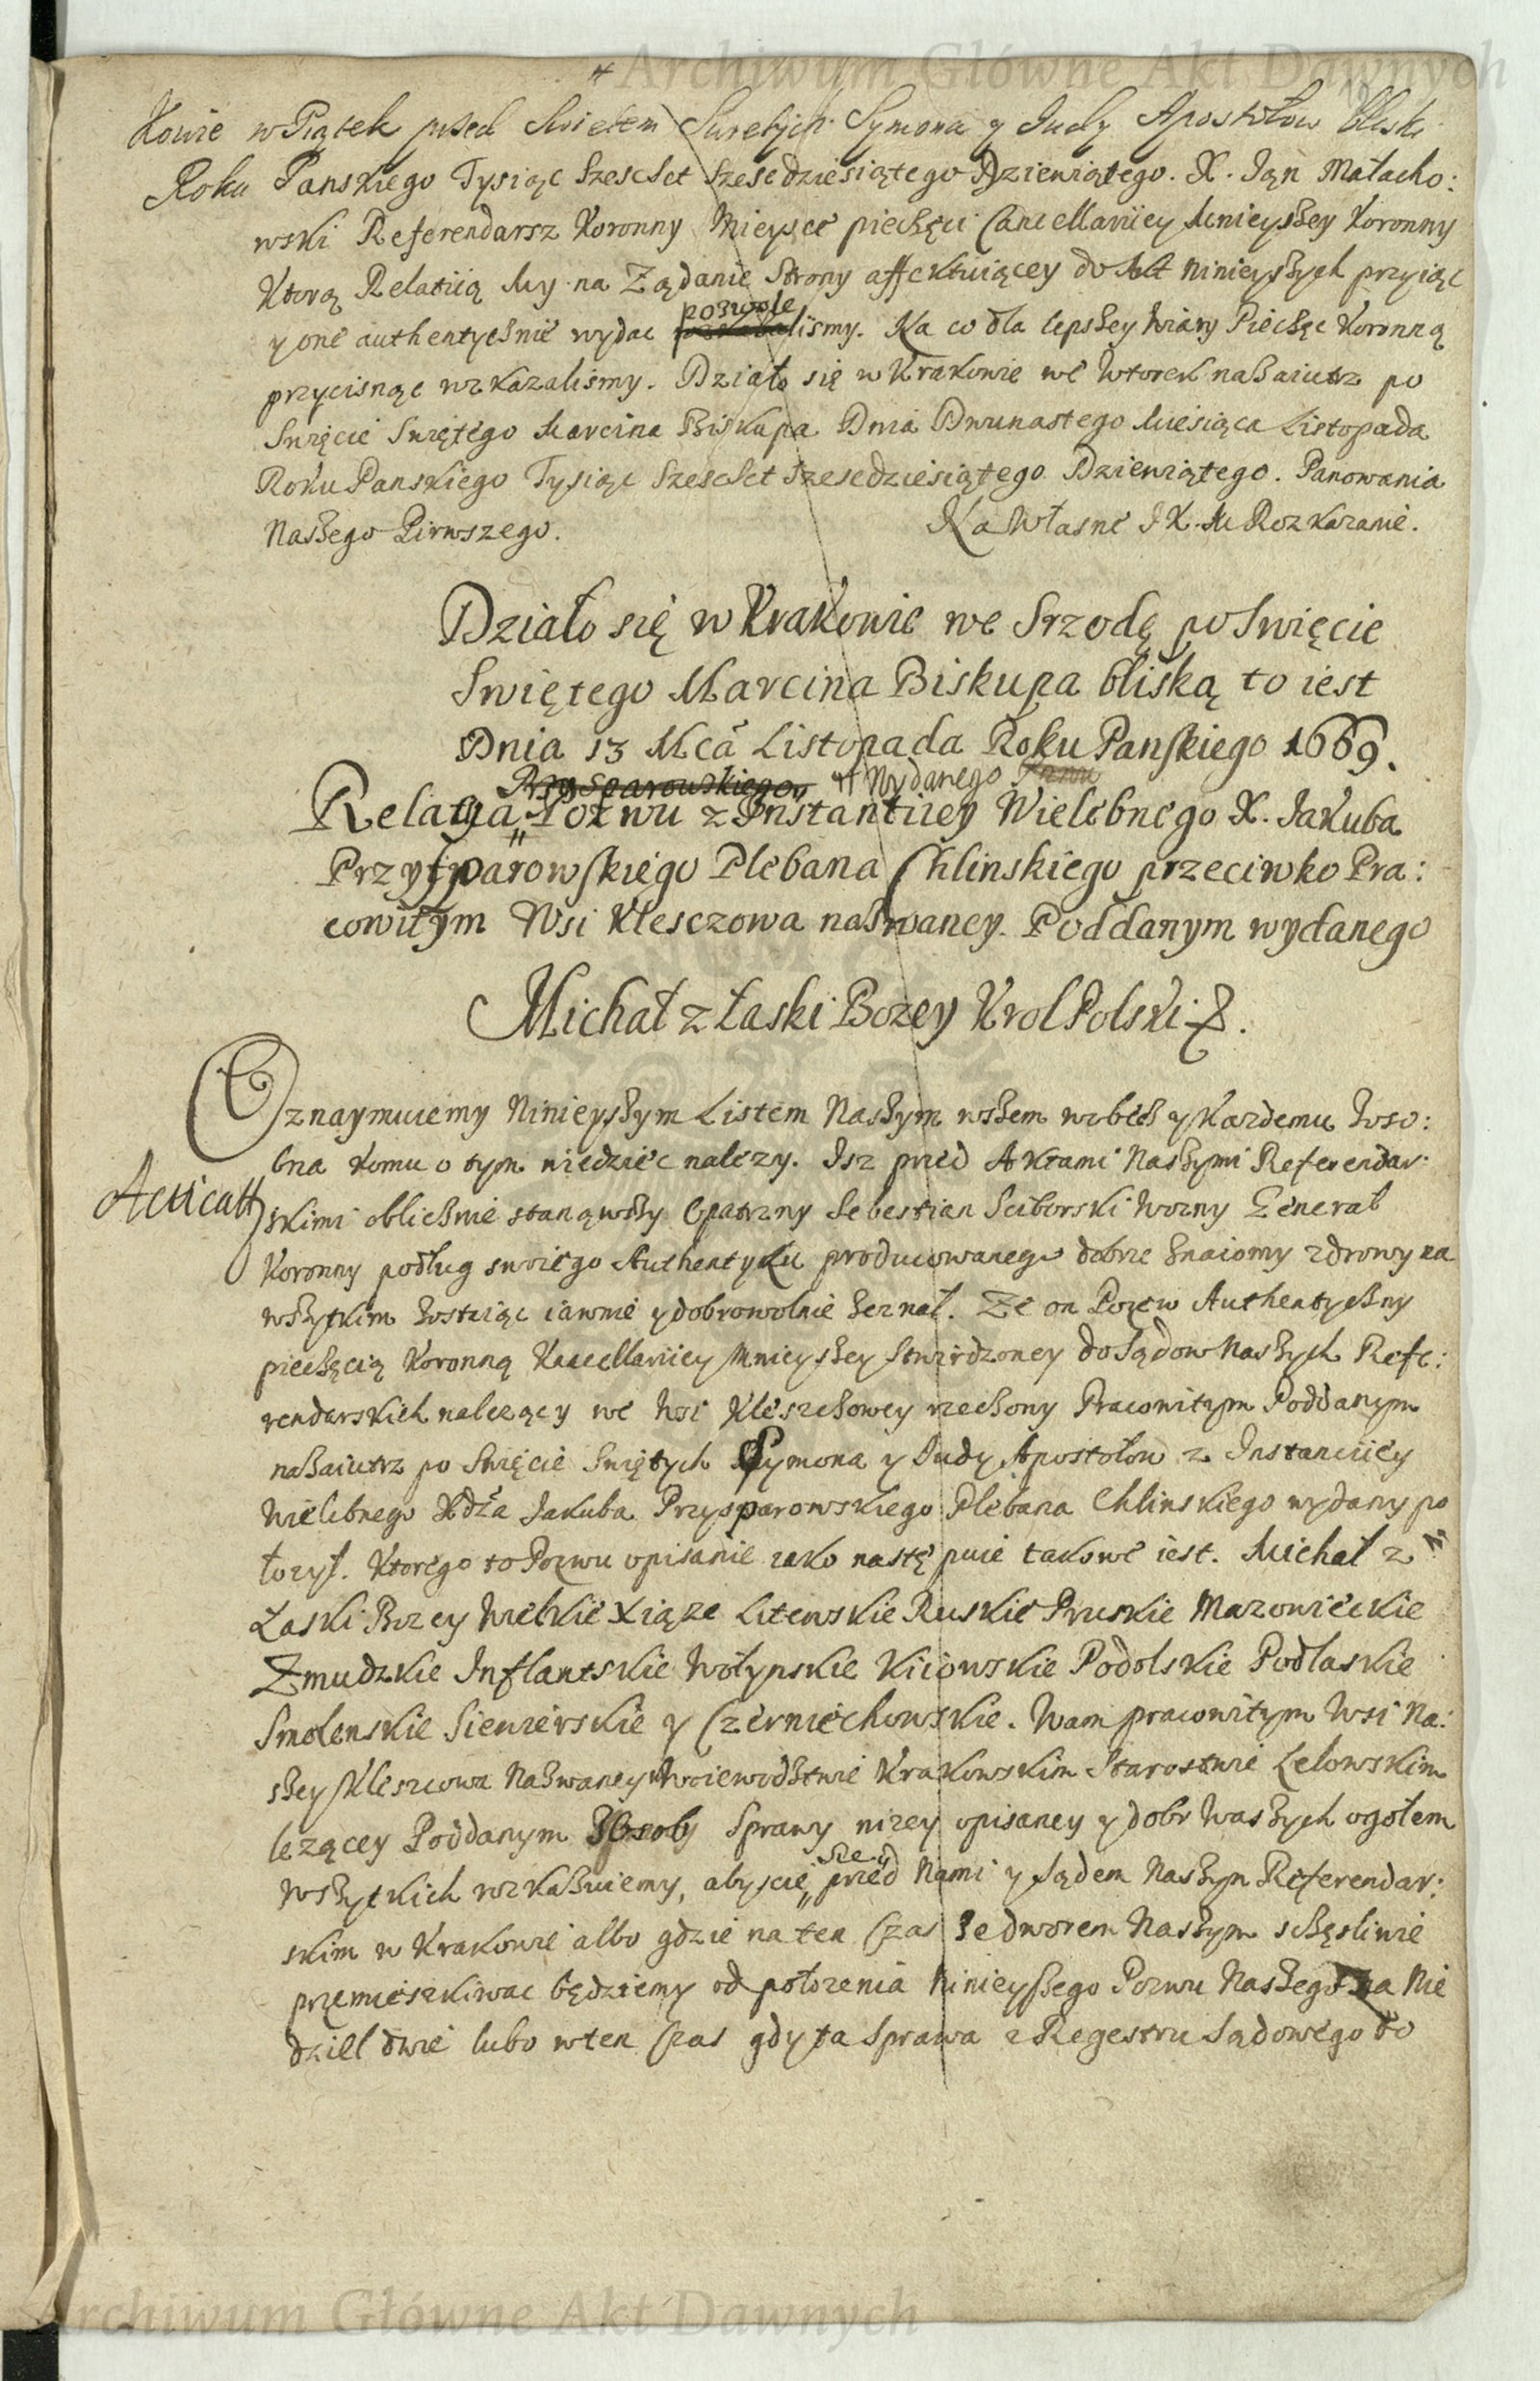 Archiwum Główne Akt Dawnych
kowie w Piątek przed Swiętem Swiętych Symona y Judy Apostołow blisk
Roku Panskiego Tysiąc Szescset Szescdziesiątego Dziewiątego. X. Jan Małacho:
wski Referendarsz Koronny Mieysce pieczęci Cancellariiey Mnieyszey Koronny
Ktorą Relatiią My na Ządanie Strony affektuiącey do Akt ninieyszych przyiąc
pozwole
y one authentycznie wydac lismy. Na co dla lepszey wiary Pieczęc Koronną
przycisnąc rozkazalismy. Działo się w Krakowie we Wtorek nazaiutrz po
Swięcie Swiętego Marcina Biskupa Dnia Dwunastego Miesiąca Listopada
Roku Panskiego Tysiąc Szescset Szescdziesiątego Dziewiątego. Panowania
Naszego Pirwszego. Na Własne J K M Rozkazanie.
Działo się w Krakowie we Srzodę po Swięcie
Swiętego Marcina Biskupa bliską to iest
Dnia 13 Mca Listopada Roku Panskiego 1669.
Przysparowskiego Wydanego
Relatya Pozwu z Instantiiey Wielebnego X. Jakuba
Przysparowskiego Plebana Chlinskiego przeciwko Pra:
cowitym Wsi Klesczowa nazwaney Poddanym wydanego
Michał z Łaski Bozey Krol Polski
Oznaymuiemy Ninieyszym Listem Naszym wszem wobec y kazdemu zoso:
bna komu o tym wiedziec nalezy. Isz przed Aktami Naszymi Referendar:
Acticatt
skimi oblicznie stanąwszy Opatrzny Sebestian Sciborski Wozny Generał
Koronny podług swoiego Authentyku producowanego dobrze znaiomy zdrowy na
wszytkim zostaiąc iawnie y dobrowolnie zeznał. Ze on Pozew Authentyczny
pieczęcią Koronną Kancellariiey Mnieyszey stwirdzoney do Sądow Naszych Refe:
rendarskich nalezący we Wsi Kleszczowey rzeczony Pracowitym Poddanym
nazaiutrz po Swięcie Swiętych Symona y Judy Apostołow z Instanciiey
Wielebnego Xdza Jakuba Przysparowskiego Plebana Chlinskiego wydany po
łozył. Ktorego to Pozwu opisanie iako następuie takowe iest. Michał z
Łaski Bozey Wielkie Xiąze Litewskie Ruskie Pruskie Mazowieckie
Zmudzkie Inflantskie Wołynskie Kiiowskie Podolskie Podlaskie
Smolenskie Siewierskie y Czerniechowskie. Wam pracowitym Wsi Na:
szey Kleszcowa Nazwaney Woiewodztwie Krakowskim Starostwie Lelowskim
lezącey Poddanym Sprawy nizey opisaney y dobr Waszych ogołem
się
wszytkich rozkazuiemy, abyscie przed Nami y Sądem Naszym Referendar:
skim w Krakowie albo gdzie na ten Czas ze dworem Naszym sczęsliwie
przemieszkiwac będziemy od połozenia Ninieyszego Pozwu Naszego za Nie
dziel dwie lubo w ten Czas gdy ta Sprawa z Regestru Sądowego do
Archiwum Główne Akt Dawnych